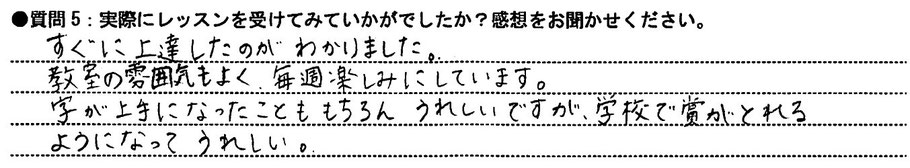 ●質問5：実際にレッスンを受けてみていかがでしたか？感想をお聞かせください。
すぐに上達したのがわかりました。
教室の雰囲気もよく、毎週楽しみにしています。
字が上手になったことももちろんうれしいですが、学校で賞がとれる
ようになってうれしい。